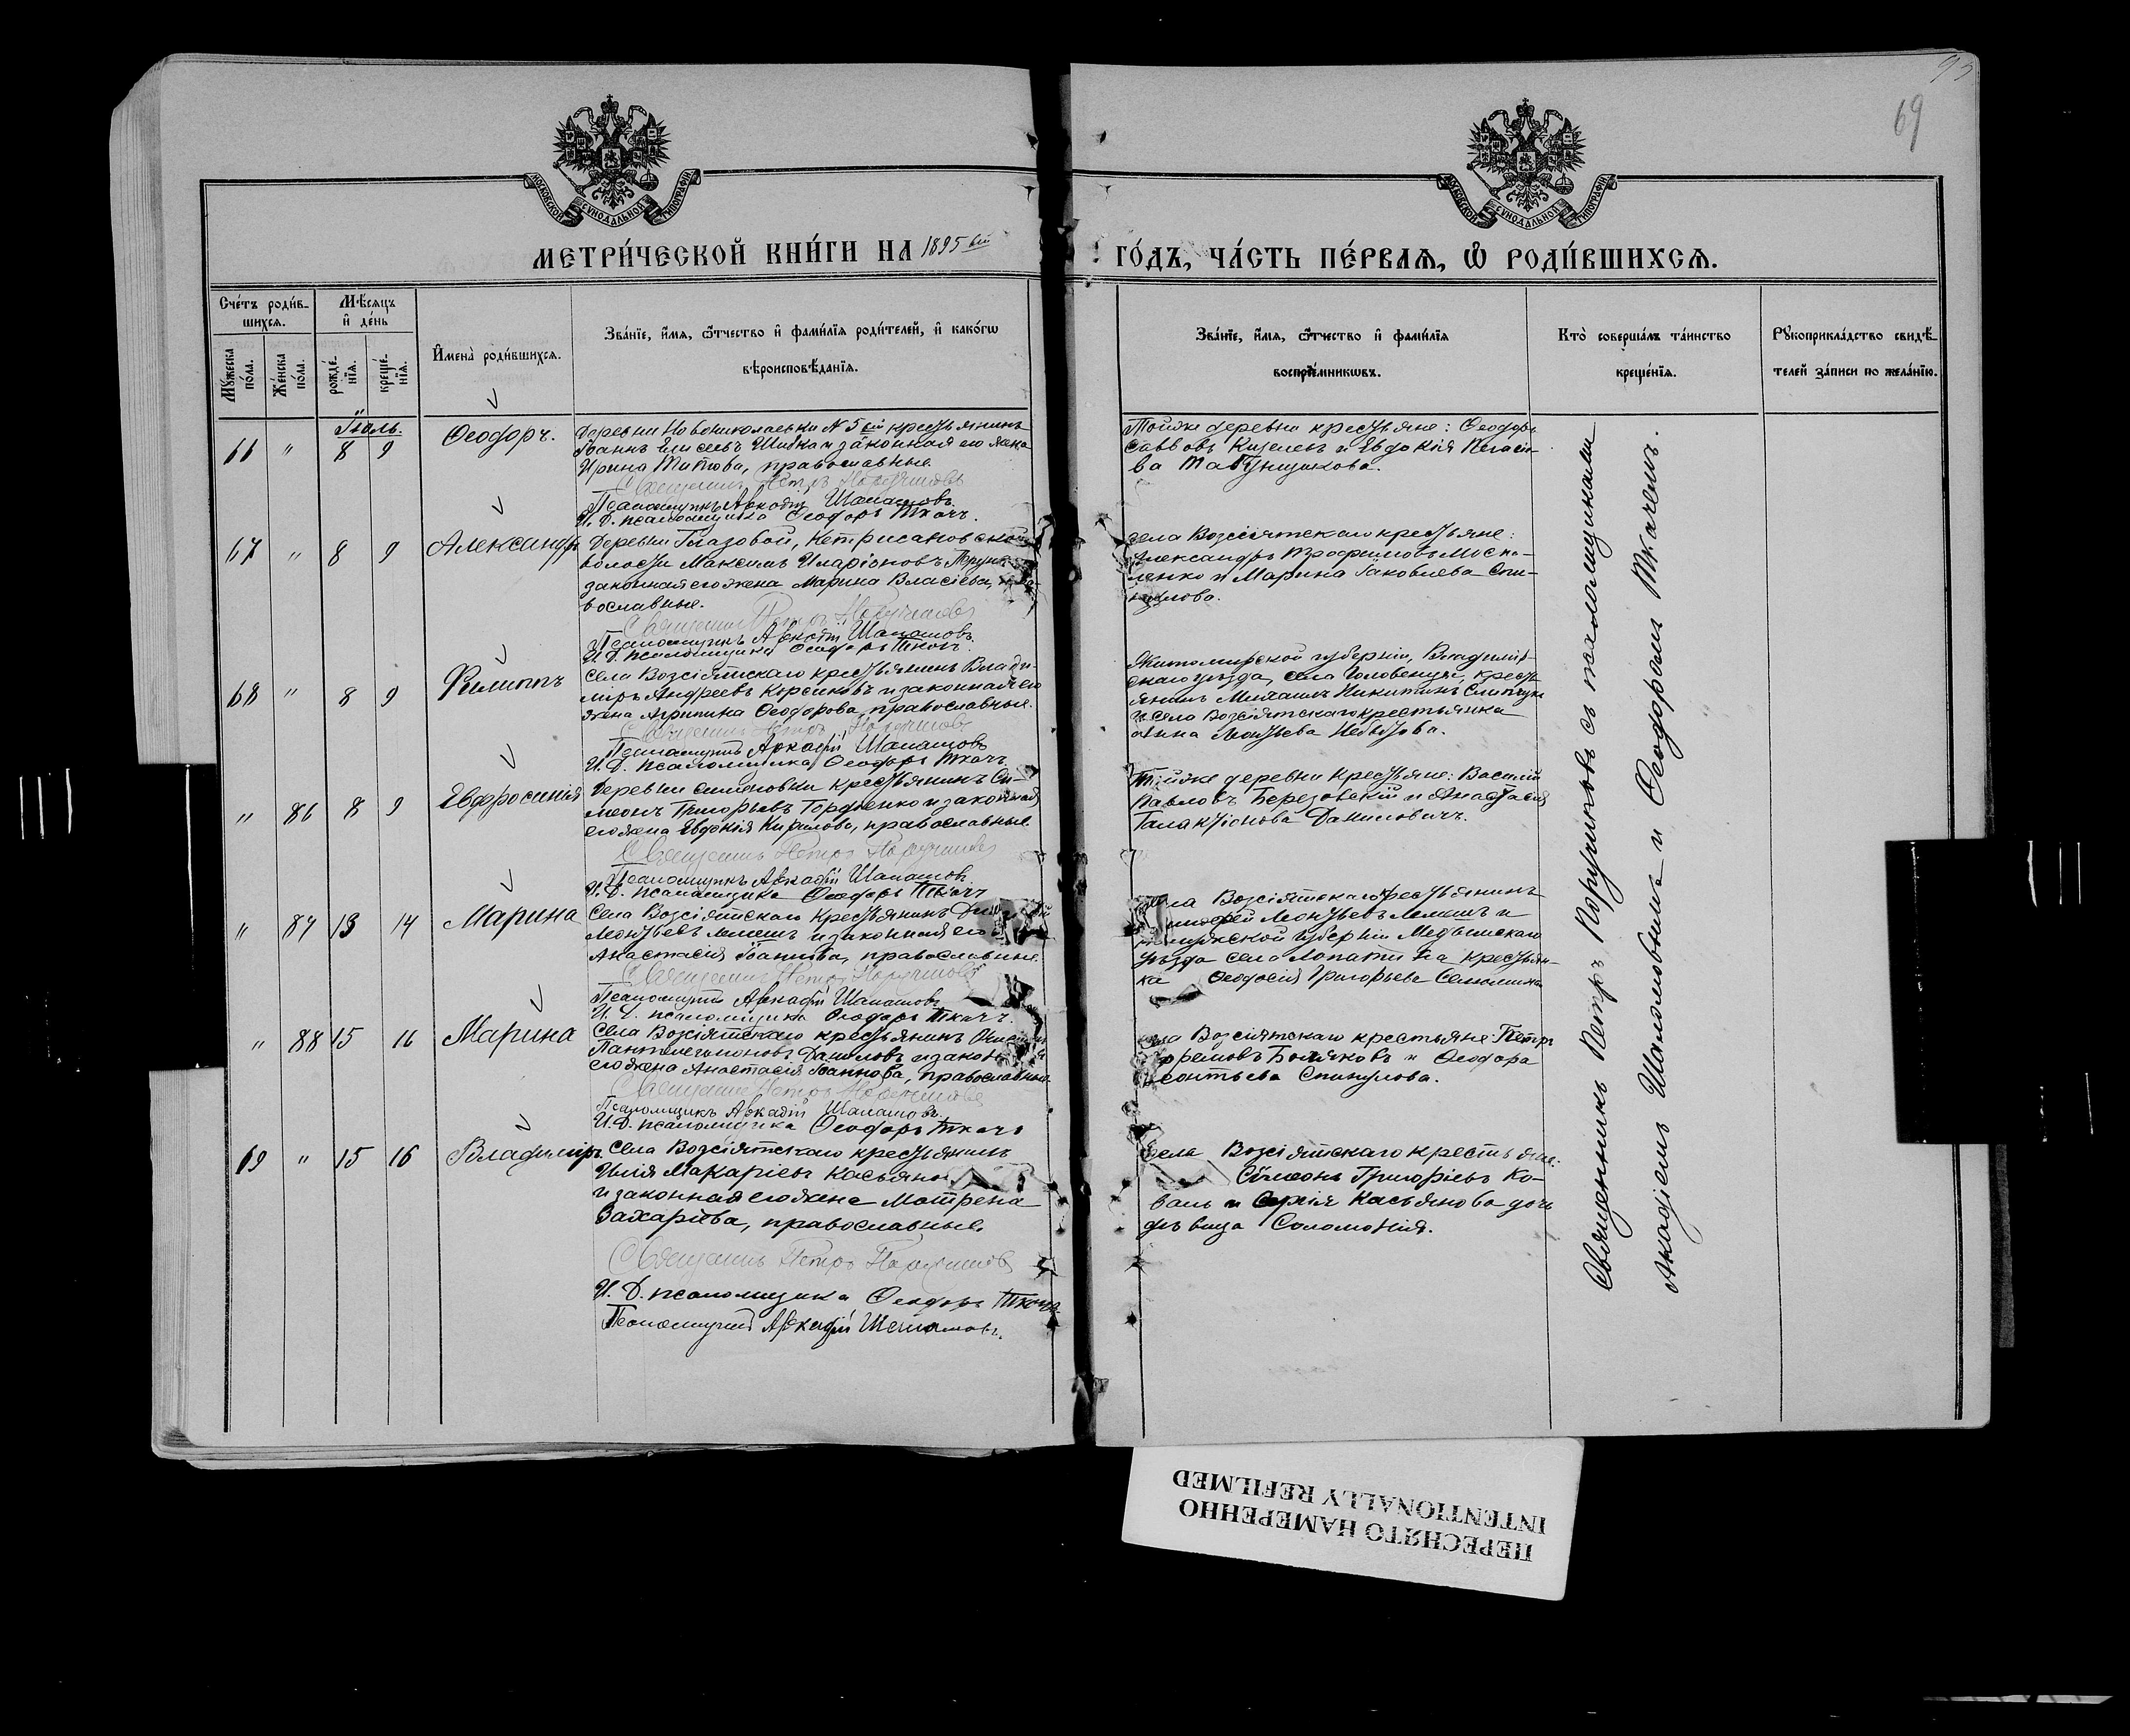 69
МОСКОВСКОЙ СѴНОДАЛЬНОЙ ТИПОГРАФІИ
МОСКОВСКОЙ СѴНОДАЛЬНОЙ ТИПОГРАФІИ
МЕТРИ́ЧЕСКОЙ КНИ́ГИ НА 1895 ый
ГО́ДЪ, ЧА́СТЬ ПЕ́РВАѦ, Ѡ҆ РОДИ́ВШИХСѦ.
Сче́тъ роди́в-
шихсѧ.
Мꙋ́жеска по́ла.
Же́нска по́ла.
Мѣ́сѧцъ
и҆ де́нь
рожде́-
нїѧ.
креще́-
нїѧ.
И҆мена̀ роди́вшихсѧ.
Зва́нїе, и҆́мѧ, ѻ҆́тчество и҆ фами́лїѧ роди́телей, и҆ како́гѡ
вѣроисповѣ́данїѧ.
Зва́нїе, и҆́мѧ, ѻ҆́тчество и҆ фами́лїѧ
воспрїе́мникѡвъ.
Кто̀ соверша́лъ та́инство
креще́нїѧ.
Рꙋкоприкла́дство свидѣ́-
телей за́писи по жела́нїю.
Іюль.
66 " 8 9 Ѳеодоръ.
Деревни Новониколаевки N 5ой крестьянинъ
Іоаннъ Елисеевъ Шибка и законная его жена
Ирина Титова, православные.
Священникъ Петръ Поручиковъ
Псаломщикъ Аркадій Шаламовъ.
И. Д. псаломщика Ѳеодоръ Ткачъ.
Тойже деревни крестьяне: Ѳеодоръ
Саввовъ Киселевъ и Евдокія
ва Табунщикова.
67 " 8 9 Александръ
Деревни Глазовой,
волости Максимъ Иларіоновъ
законная его жена Марина Власіева, пра-
вославные.
Священникъ Петръ Поручиковъ
Псаломщикъ Аркадій Шаламовъ.
И. Д. псаломщика Ѳеодоръ Ткачъ.
села Возсіятскаго крестьяне:
Александръ Трофимовъ Моска-
ленко и Марина Іаковлева Спи-
нулова.
68 " 8 9 Филиппъ
Села Возсіятскаго крестьянинъ Влади-
міръ Андреевъ Корсиковъ и законная его
жена Агрипина Ѳеодорова, православные.
Священникъ Петръ Поручиковъ
Псаломщикъ Аркадій Шаламовъ
И. Д. псаломщика Ѳеодоръ Ткачъ
Житомирской губерніи, Владимір-
скаго уѣзда, села Головенця, кресть
янинъ Михаилъ Никитинъ
и села Возсіятскаго крестьянка
Анна Леонтьева
" 86 8 9 Евфросинія
Деревни Семеновки крестьянинъ Си-
меонъ Григорьевъ Гордіенко и законная
его жена Евдокія Кирилова, православные.
Священникъ Петръ Поручиковъ
Псаломщикъ Аркадій Шаламовъ.
И. Д. псаломщика Ѳеодоръ Ткачъ
Тойже деревни крестьяне: Василій
Павловъ Березовскій и Анастасія
Галактіонова Даниловичъ.
" 87 13 14 Марина
Села Возсіятскаго крестьянинъ
Леонтьевъ Лемешъ и законная его
Анастасія Іоаннова, православные.
Священникъ Петръ Поручиковъ
Псаломщикъ Аркадій Шаламовъ
И. Д. псаломщика Ѳеодоръ Ткачъ.
Возсіятскаго крестьянинъ
Леонтьевъ Лемешъ и
губерніи
уѣзда села Лопатинка крестьян-
ка Ѳеодосія Григорьева
" 88 15 16 Марина
Села Возсіятскаго крестьянинъ
Пантелеимоновъ Даниловъ и закон
его жена Анастасія Іоаннова, православные.
Священникъ Петръ Поручиковъ
Псаломщикъ Аркадій Шаламовъ.
И. Д. псаломщика Ѳеодоръ Ткачъ
Возсіятскаго крестьяне: Петръ
Боляковъ и Ѳеодора
Леонтьева Спинулова.
69 " 15 16 Владиміръ
Села Возсіятскаго крестьянинъ
Илія Макаріевъ
и законная его жена Матрена
Захаріева, православные.
Священникъ Петръ Поручиковъ
И. Д. псаломщика Ѳеодоръ Ткачъ.
Псаломщикъ Аркадій Шаламовъ.
Села Возсіятскаго крестьяне:
Сѵмеонъ Григоріевъ Ко-
валь и Касьянова дочь
дѣвица Соломонія.
Священникъ Петръ Поручиковъ съ псаломщиками
Аркадіемъ Шаламовымъ и Ѳеодоромъ Ткачемъ.
ПЕРЕСНЯТО НАМЕРЕННО
INTENTIONALLY REFILMED